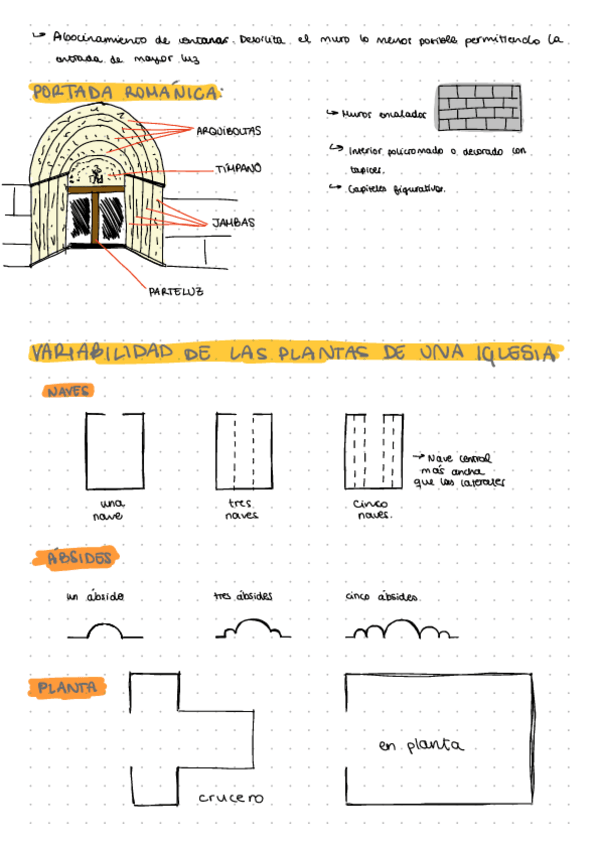 ↳ Abocinamiento de ventanas. Debilita el muro lo menor posible permitiendo la
entrada de mayor luz
PORTADA ROMÁNICA:
ARQUIBOLTAS
TÍMPANO
JAMBAS
PARTELUZ
↳ Muros
↳ Interior policromado o decorado con
tapices.
↳ Capiteles figurativos.
VARIABILIDAD DE LAS PLANTAS DE UNA IGLESIA
NAVES
una
nave
tres
naves
cinco
naves.
→ Nave central
más ancha
que las laterales
ÁBSIDES
un ábside
tres ábsides
cinco ábsides.
PLANTA
crucero
en planta